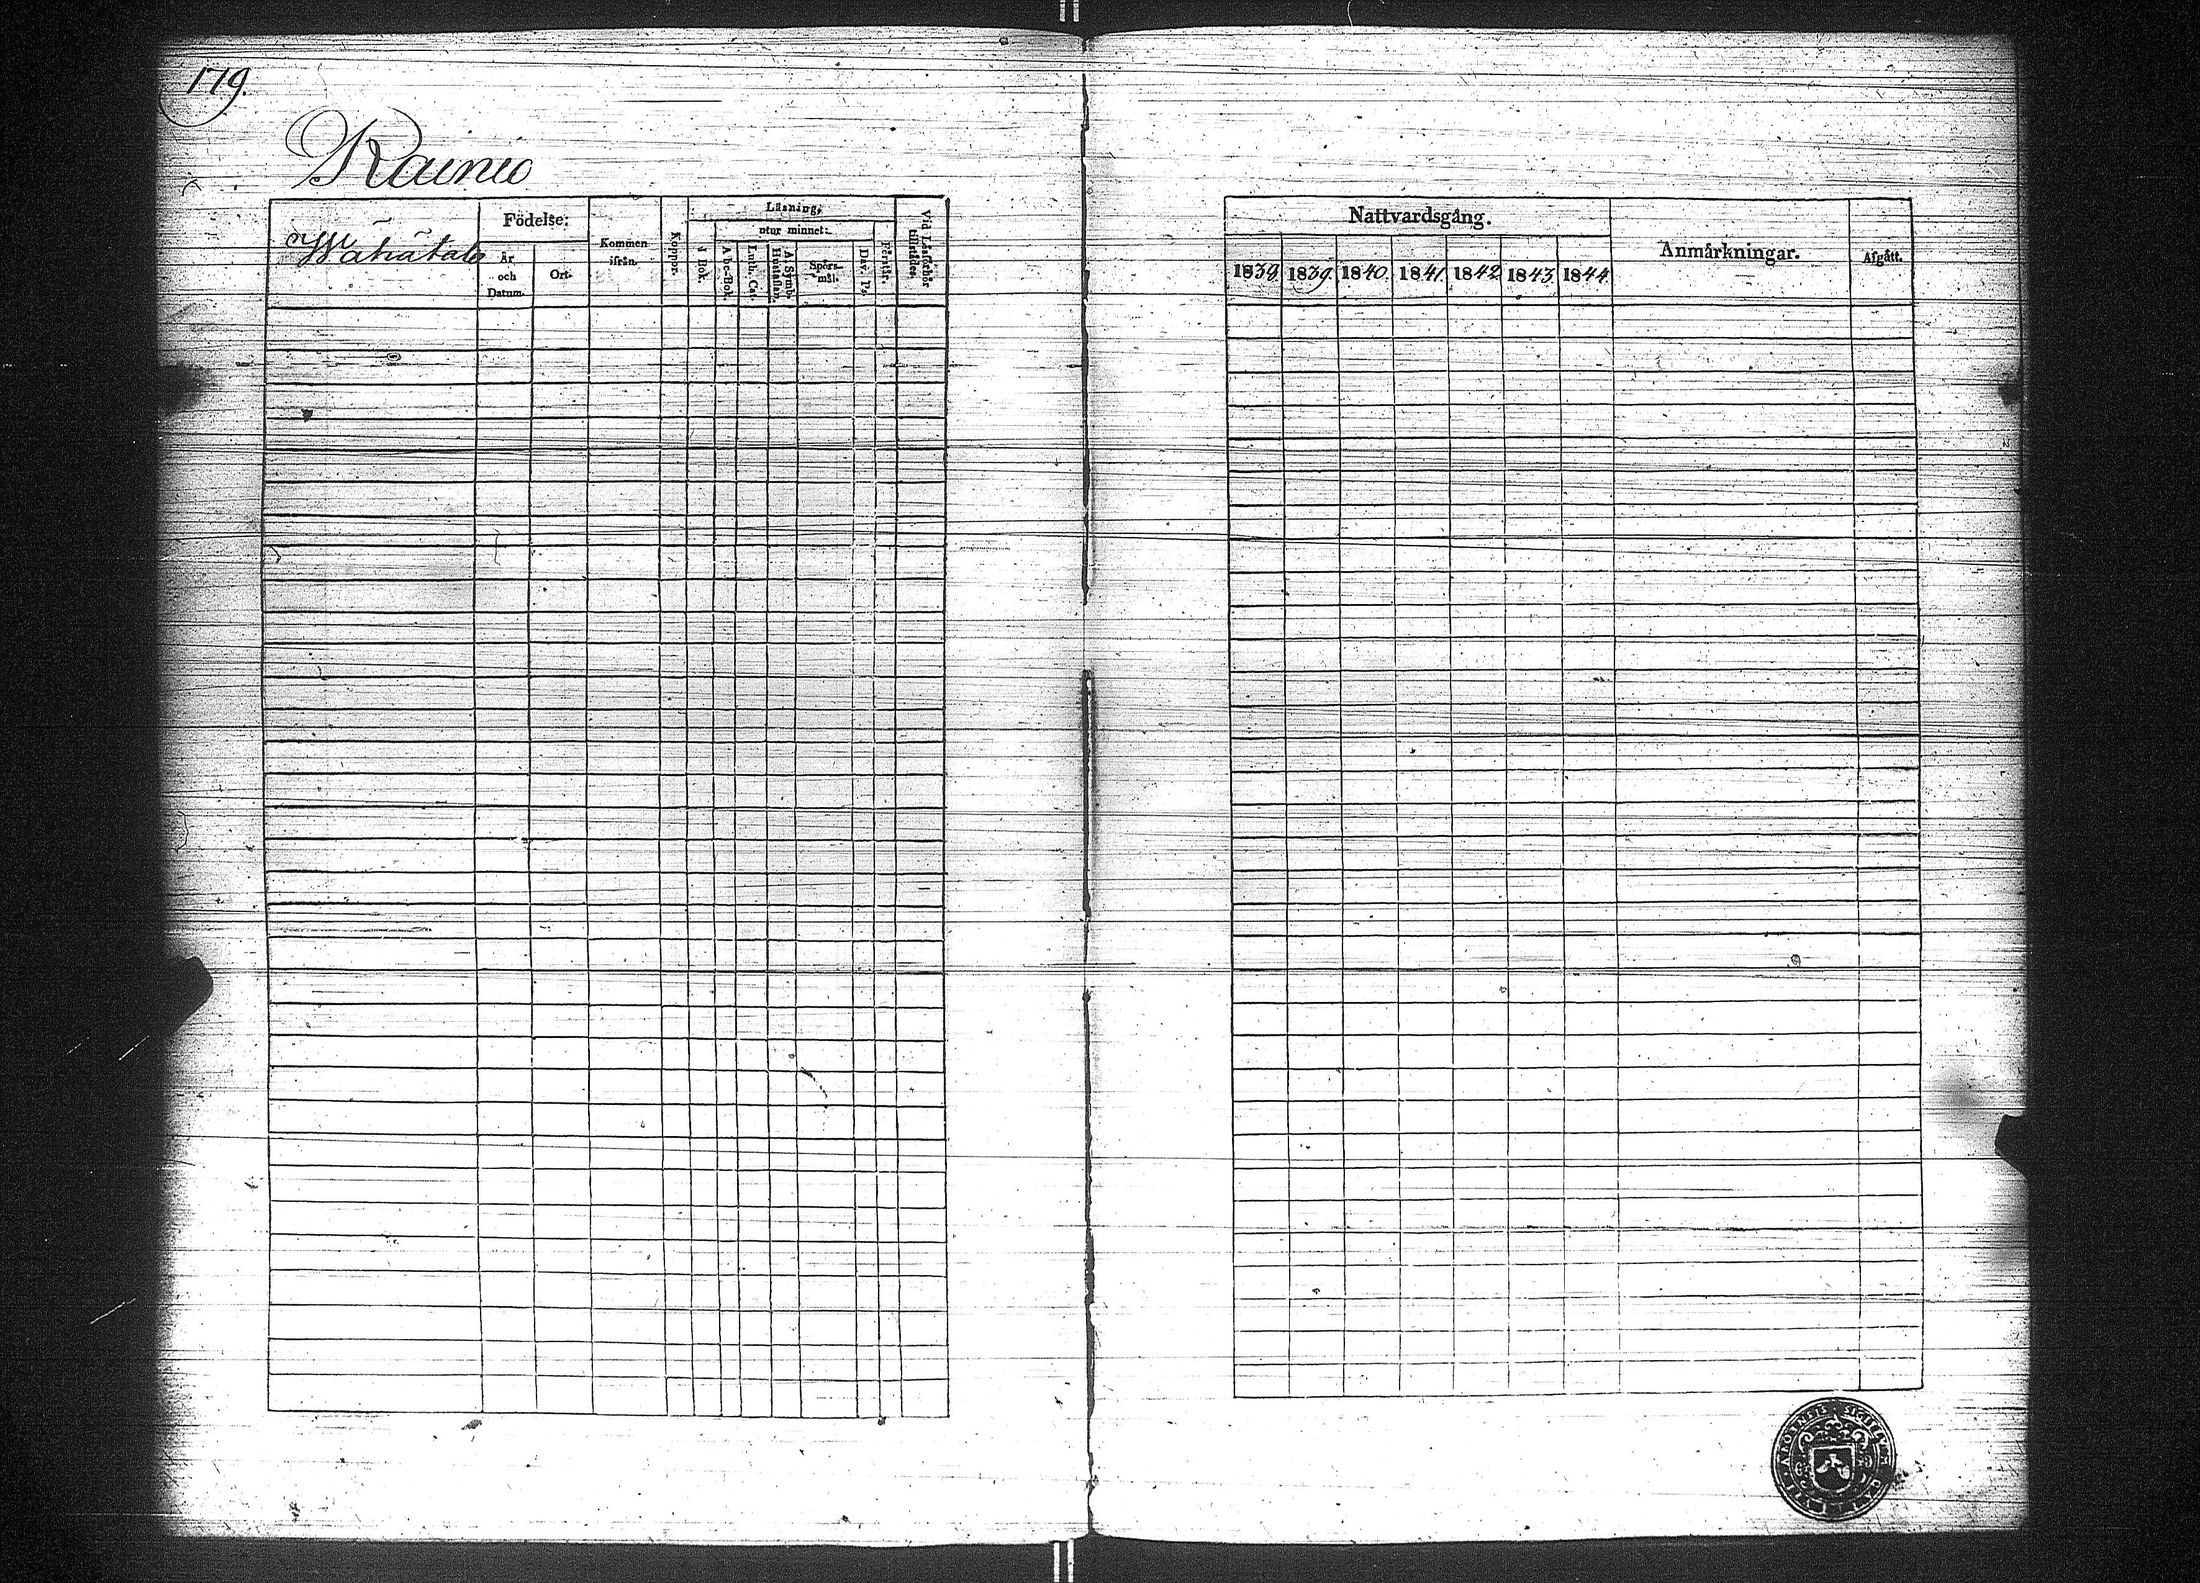 179.
Rainio
Wähätalo
Födelse:
År och Datum.
Ort.
Kommen ifrån.
Koppor.
Läsning,
utur minnet:
I Bok.
A bc-Bok.
Luth. Cat.
A. Symb. Hustaflan.
Spörsmål.
Dav. Ps.
Förstår.
Vid Läsförhör tillstädes.
Nattvardsgång.
1839. 1839. 1840. 1841. 1842 1843. 1844.
Anmärkningar.
Afgått.